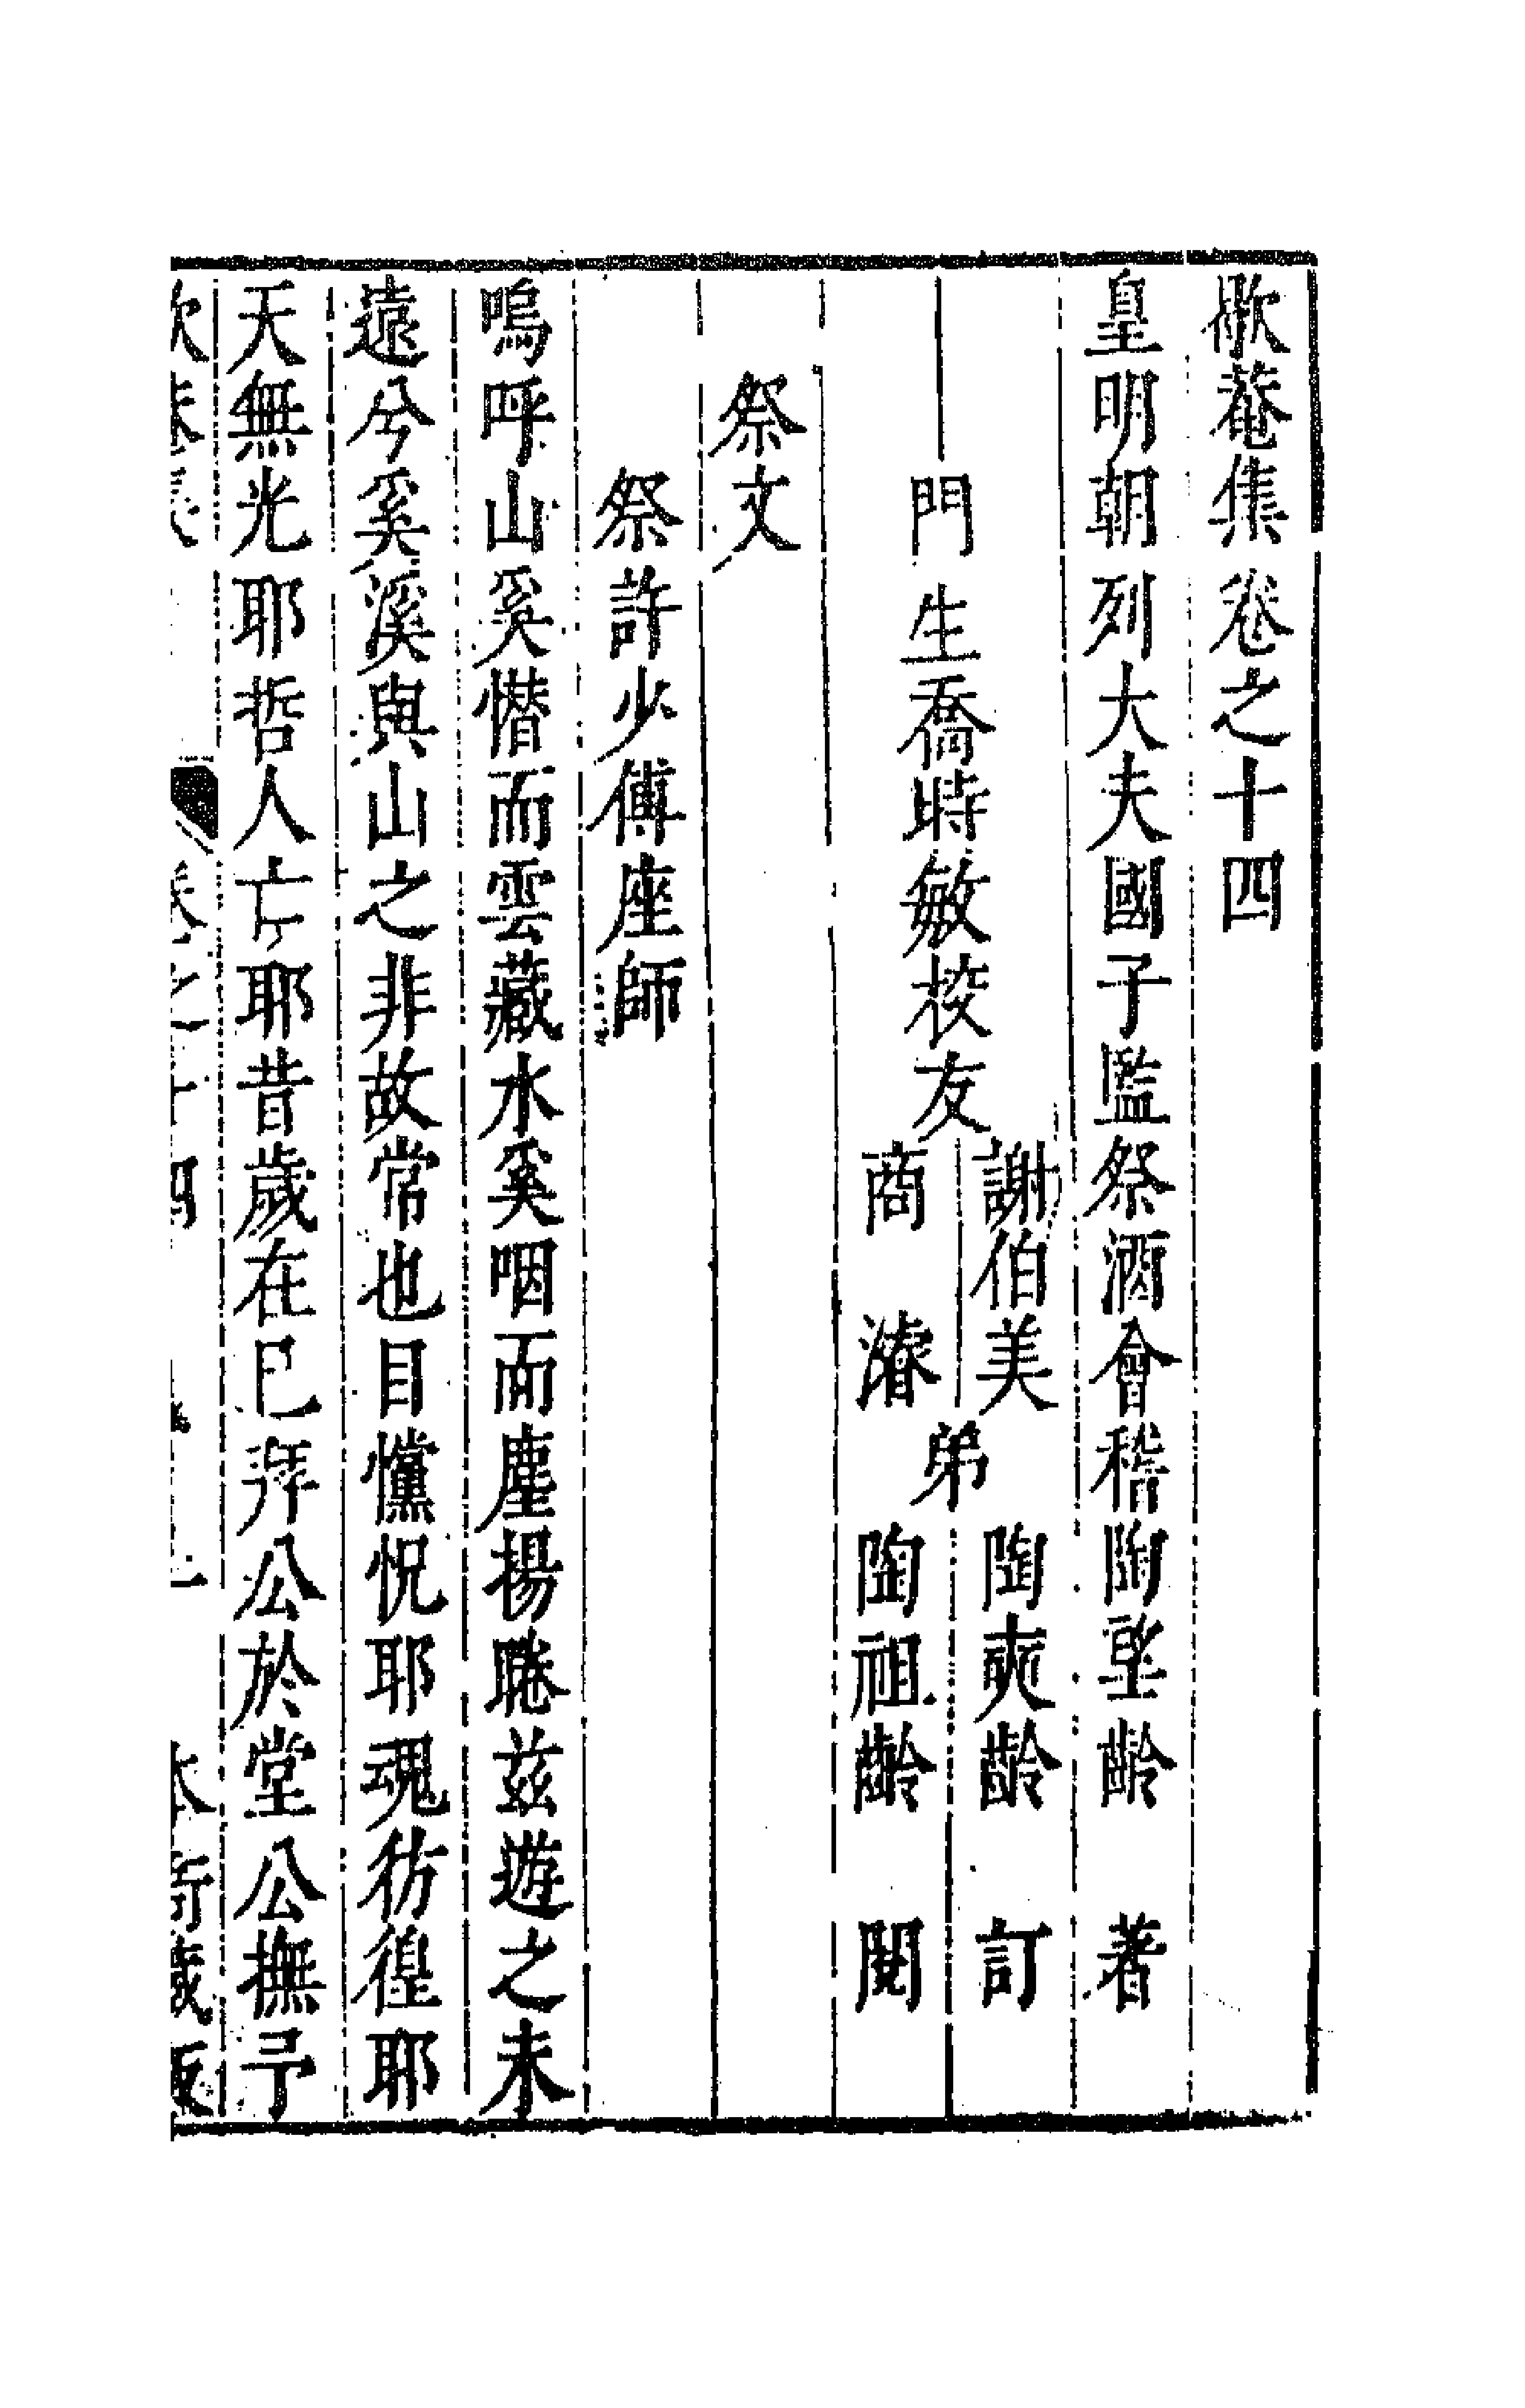 歇菴集卷之十四
皇明朝列大夫國子監祭酒會稽陶望齡 著
門生喬時敏校友 謝伯美 弟 陶奭齡 訂
商 濬 陶祖齡 閱
祭文
祭許少傅座師
嗚呼山奚憯而雲藏水奚咽而塵揚睠茲遊之未
遠兮奚溪與山之非故常也目戃怳耶魂彷徨耶
天無光耶哲人亡耶昔歲在巳拜公於堂公撫予